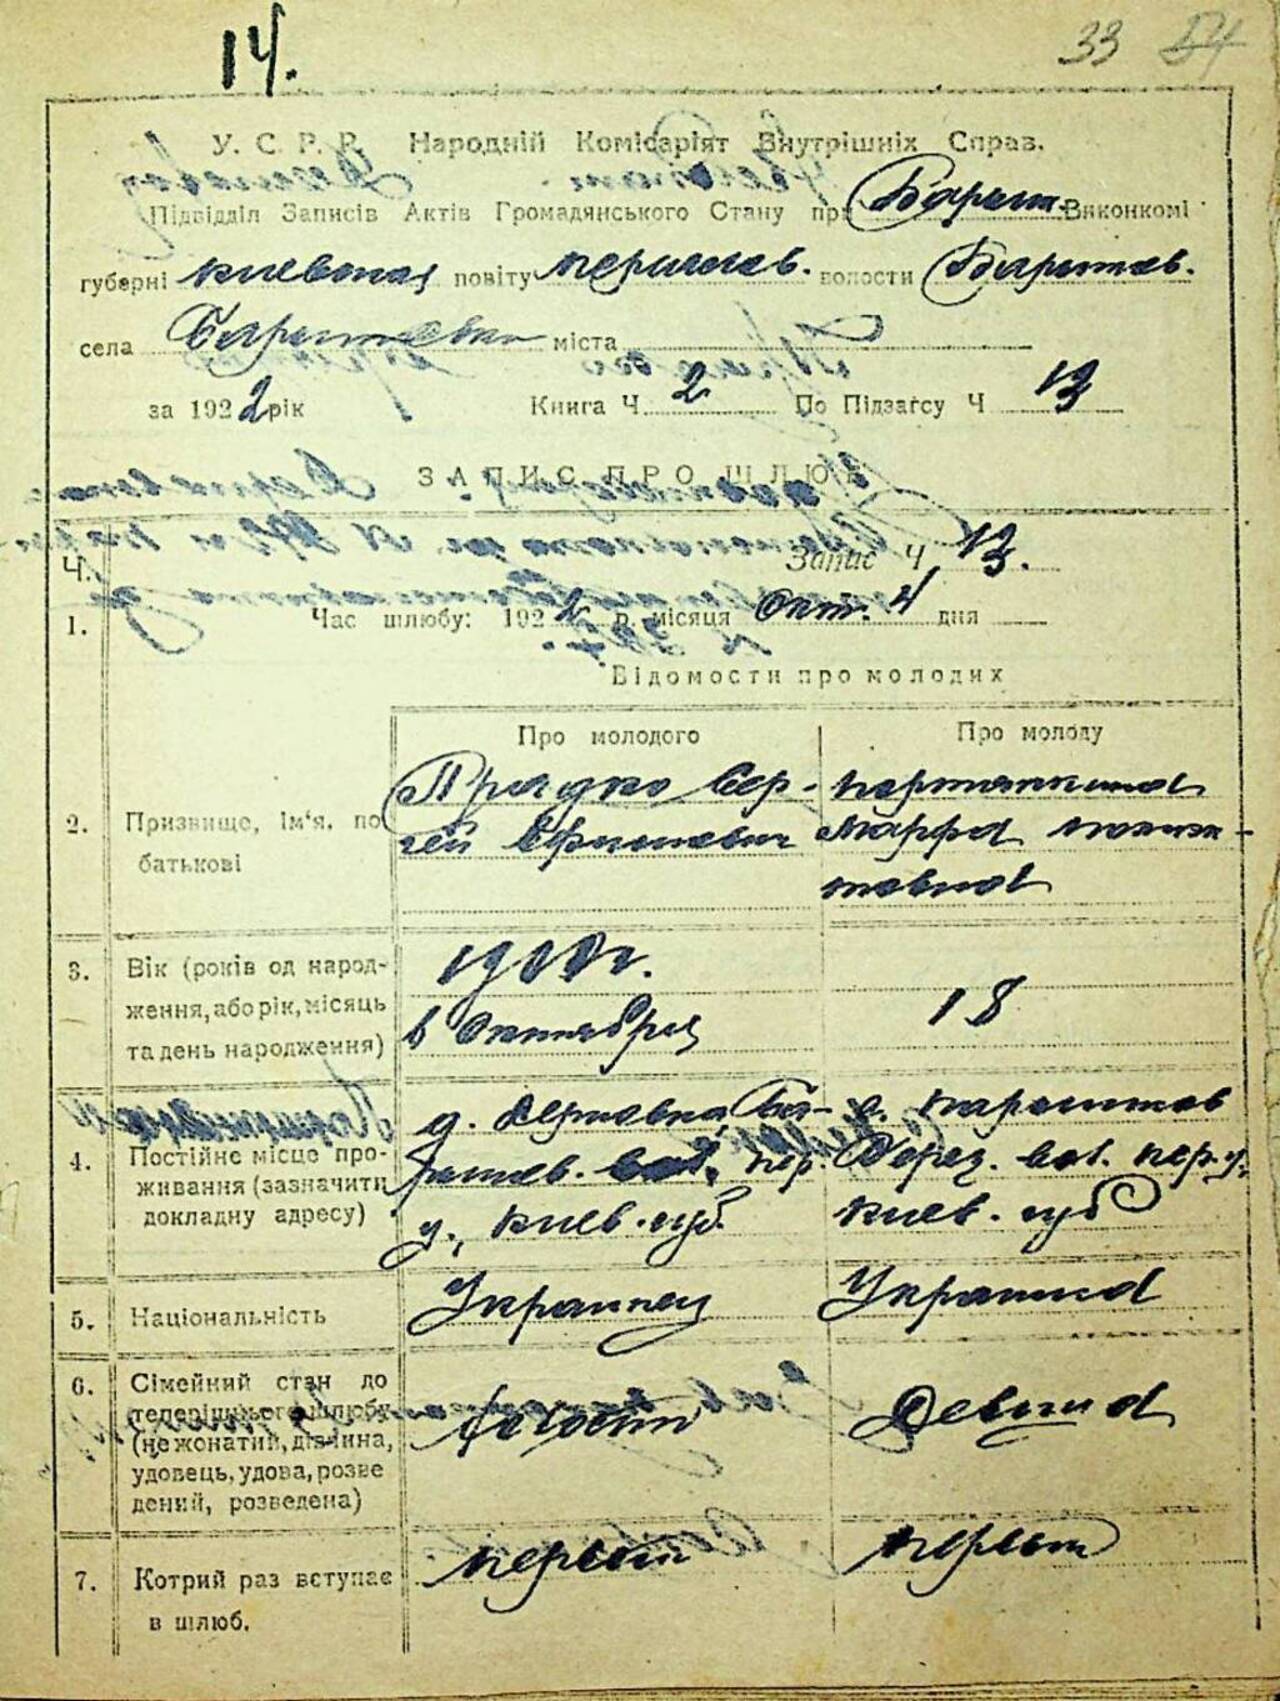 14.
33 54
У. С. Р. Р. Народній Комісаріят Внутрішніх Справ.
Підвідділ Записів Актів Громадянського Стану при Барыш. Виконкомі
губерні Киевская повіту Переяслав. волости Барышев.
села Барышевки міста
за 1922 рік Книга Ч. 2 По Підзаґсу Ч 13
ЗАПИС ПРО ШЛЮБ
Ч. Запис Ч 13.
1. Час шлюбу: 1922 р. місяця Окт. 4 дня
Відомости про молодих
Про молодого Про молоду
2. Призвище, ім'я, по батькові
Прядко Сергей Ефимович
Марфа
3. Вік (років од народ-
ження, або рік, місяць
та день народження)
190 г.
в Октября
18
4. Постійне місце про-
живання (зазначити
докладну адресу)
д. Дерновка, Ба-
рышев. вол., пер.
у., Киев. губ.
с.
Берез. вол. пер. у.
Киев. губ
5. Національність
Украинец Украинка
6. Сімейний стан до
теперішнього шлюбу
(не жонатий, дівчина,
удовець, удова, розве
дений, розведена)
холост Девица
7. Котрий раз вступає
в шлюб.
первый первый